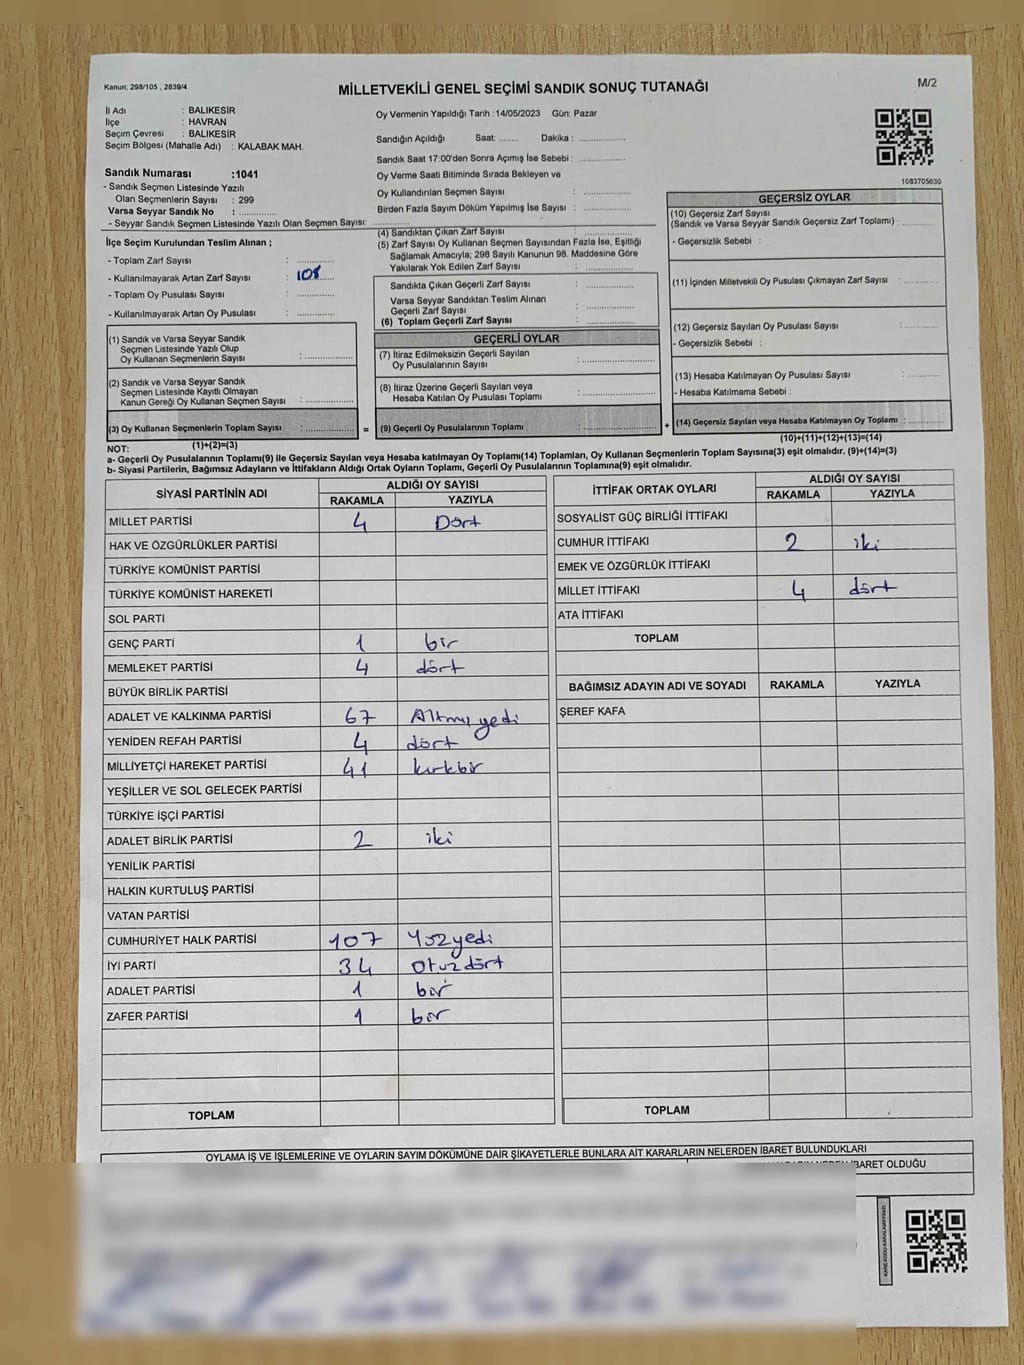 Kanun; 298/105 , 2839/4
MİLLETVEKİLİ GENEL SEÇİMİ SANDIK SONUÇ TUTANAĞI
M/2
İl Adı : BALIKESİR
İlçe : HAVRAN
Seçim Çevresi : BALIKESİR
Seçim Bölgesi (Mahalle Adı) : KALABAK MAH.
Sandık Numarası :1041
- Sandık Seçmen Listesinde Yazılı
Olan Seçmenlerin Sayısı : 299
Varsa Seyyar Sandık No : ..............
- Seyyar Sandık Seçmen Listesinde Yazılı Olan Seçmen Sayısı: ..............
Oy Vermenin Yapıldığı Tarih :14/05/2023 Gün: Pazar
Sandığın Açıldığı Saat: ....... Dakika : ..............
Sandık Saat 17:00'den Sonra Açımış İse Sebebi : ..............
Oy Verme Saati Bitiminde Sırada Bekleyen ve
Oy Kullandırılan Seçmen Sayısı : ..............
Birden Fazla Sayım Döküm Yapılmış İse Sayısı : ..............
1083705630
İlçe Seçim Kurulundan Teslim Alınan ;
- Toplam Zarf Sayısı : ..............
- Kullanılmayarak Artan Zarf Sayısı : 108
- Toplam Oy Pusulası Sayısı : ..............
- Kullanılmayarak Artan Oy Pusulası : ..............
(1) Sandık ve Varsa Seyyar Sandık
Seçmen Listesinde Yazılı Olup
Oy Kullanan Seçmenlerin Sayısı : ..............
(2) Sandık ve Varsa Seyyar Sandık
Seçmen Listesinde Kayıtlı Olmayan
Kanun Gereği Oy Kullanan Seçmen Sayısı : ..............
(3) Oy Kullanan Seçmenlerin Toplam Sayısı : ..............
(1)+(2)=(3)
(4) Sandıktan Çıkan Zarf Sayısı : ..............
(5) Zarf Sayısı Oy Kullanan Seçmen Sayısından Fazla İse, Eşitliği
Sağlamak Amacıyla; 298 Sayılı Kanunun 98. Maddesine Göre
Yakılarak Yok Edilen Zarf Sayısı : ..............
Sandıkta Çıkan Geçerli Zarf Sayısı : ..............
Varsa Seyyar Sandıktan Teslim Alınan
Geçerli Zarf Sayısı : ..............
(6) Toplam Geçerli Zarf Sayısı : ..............
GEÇERLİ OYLAR
(7) İtiraz Edilmeksizin Geçerli Sayılan
Oy Pusulalarının Sayısı : ..............
(8) İtiraz Üzerine Geçerli Sayılan veya
Hesaba Katılan Oy Pusulası Toplamı : ..............
= (9) Geçerli Oy Pusulalarının Toplamı : ..............
GEÇERSİZ OYLAR
(10) Geçersiz Zarf Sayısı
(Sandık ve Varsa Seyyar Sandık Geçersiz Zarf Toplamı) : ..............
- Geçersizlik Sebebi :
(11) İçinden Milletvekili Oy Pusulası Çıkmayan Zarf Sayısı : ..............
(12) Geçersiz Sayılan Oy Pusulası Sayısı : ..............
- Geçersizlik Sebebi :
(13) Hesaba Katılmayan Oy Pusulası Sayısı : ..............
- Hesaba Katılmama Sebebi :
+ (14) Geçersiz Sayılan veya Hesaba Katılmayan Oy Toplamı : ..............
(10)+(11)+(12)+(13)=(14)
NOT:
a- Geçerli Oy Pusulalarının Toplamı(9) ile Geçersiz Sayılan veya Hesaba katılmayan Oy Toplamı(14) Toplamları, Oy Kullanan Seçmenlerin Toplam Sayısına(3) eşit olmalıdır. (9)+(14)=(3)
b- Siyasi Partilerin, Bağımsız Adayların ve İttifakların Aldığı Ortak Oyların Toplamı, Geçerli Oy Pusulalarının Toplamına(9) eşit olmalıdır.
SİYASİ PARTİNİN ADI ALDIĞI OY SAYISI
RAKAMLA YAZIYLA
MİLLET PARTİSİ 4 Dört
HAK VE ÖZGÜRLÜKLER PARTİSİ
TÜRKİYE KOMÜNİST PARTİSİ
TÜRKİYE KOMÜNİST HAREKETİ
SOL PARTİ
GENÇ PARTİ 1 bir
MEMLEKET PARTİSİ 4 dört
BÜYÜK BİRLİK PARTİSİ
ADALET VE KALKINMA PARTİSİ 67 Altmış yedi
YENİDEN REFAH PARTİSİ 4 dört
MİLLİYETÇİ HAREKET PARTİSİ 41 kırkbir
YEŞİLLER VE SOL GELECEK PARTİSİ
TÜRKİYE İŞÇİ PARTİSİ
ADALET BİRLİK PARTİSİ 2 iki
YENİLİK PARTİSİ
HALKIN KURTULUŞ PARTİSİ
VATAN PARTİSİ
CUMHURİYET HALK PARTİSİ 107 Yüzyedi
İYİ PARTİ 34 otuzdört
ADALET PARTİSİ 1 bir
ZAFER PARTİSİ 1 bir
TOPLAM
İTTİFAK ORTAK OYLARI ALDIĞI OY SAYISI
RAKAMLA YAZIYLA
SOSYALİST GÜÇ BİRLİĞİ İTTİFAKI
CUMHUR İTTİFAKI 2 iki
EMEK VE ÖZGÜRLÜK İTTİFAKI
MİLLET İTTİFAKI 4 dört
ATA İTTİFAKI
TOPLAM
BAĞIMSIZ ADAYIN ADI VE SOYADI RAKAMLA YAZIYLA
ŞEREF KAFA
TOPLAM
OYLAMA İŞ VE İŞLEMLERİNE VE OYLARIN SAYIM DÖKÜMÜNE DAİR ŞİKAYETLERLE BUNLARA AİT KARARLARIN NELERDEN İBARET BULUNDUKLARI
İBARET OLDUĞU